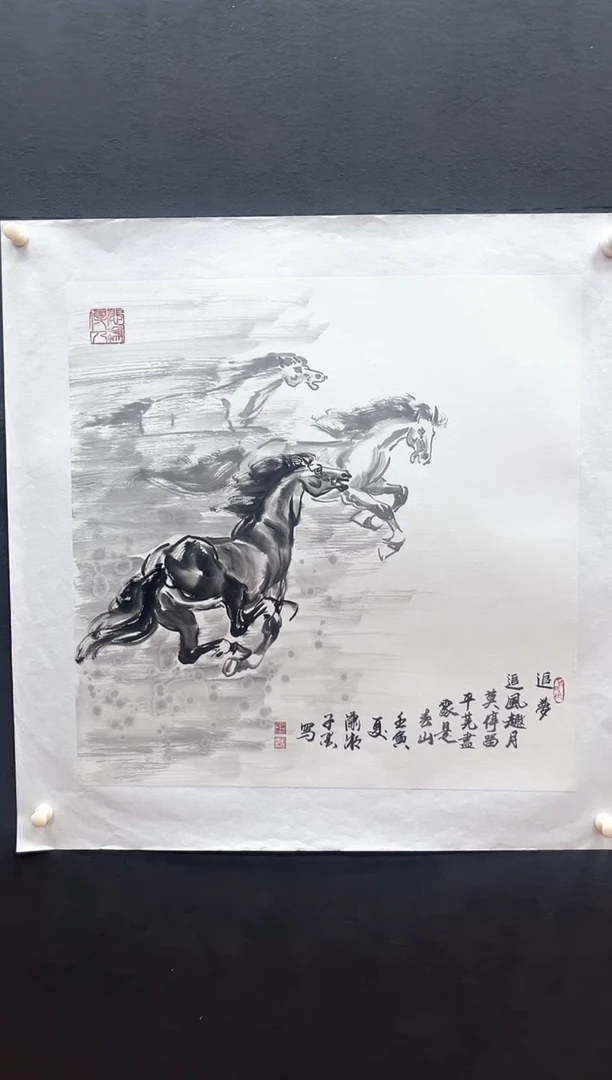 追夢
追風趕月
莫停留
平芜盡
處是
春山
壬寅
夏
瀟湘
子
写